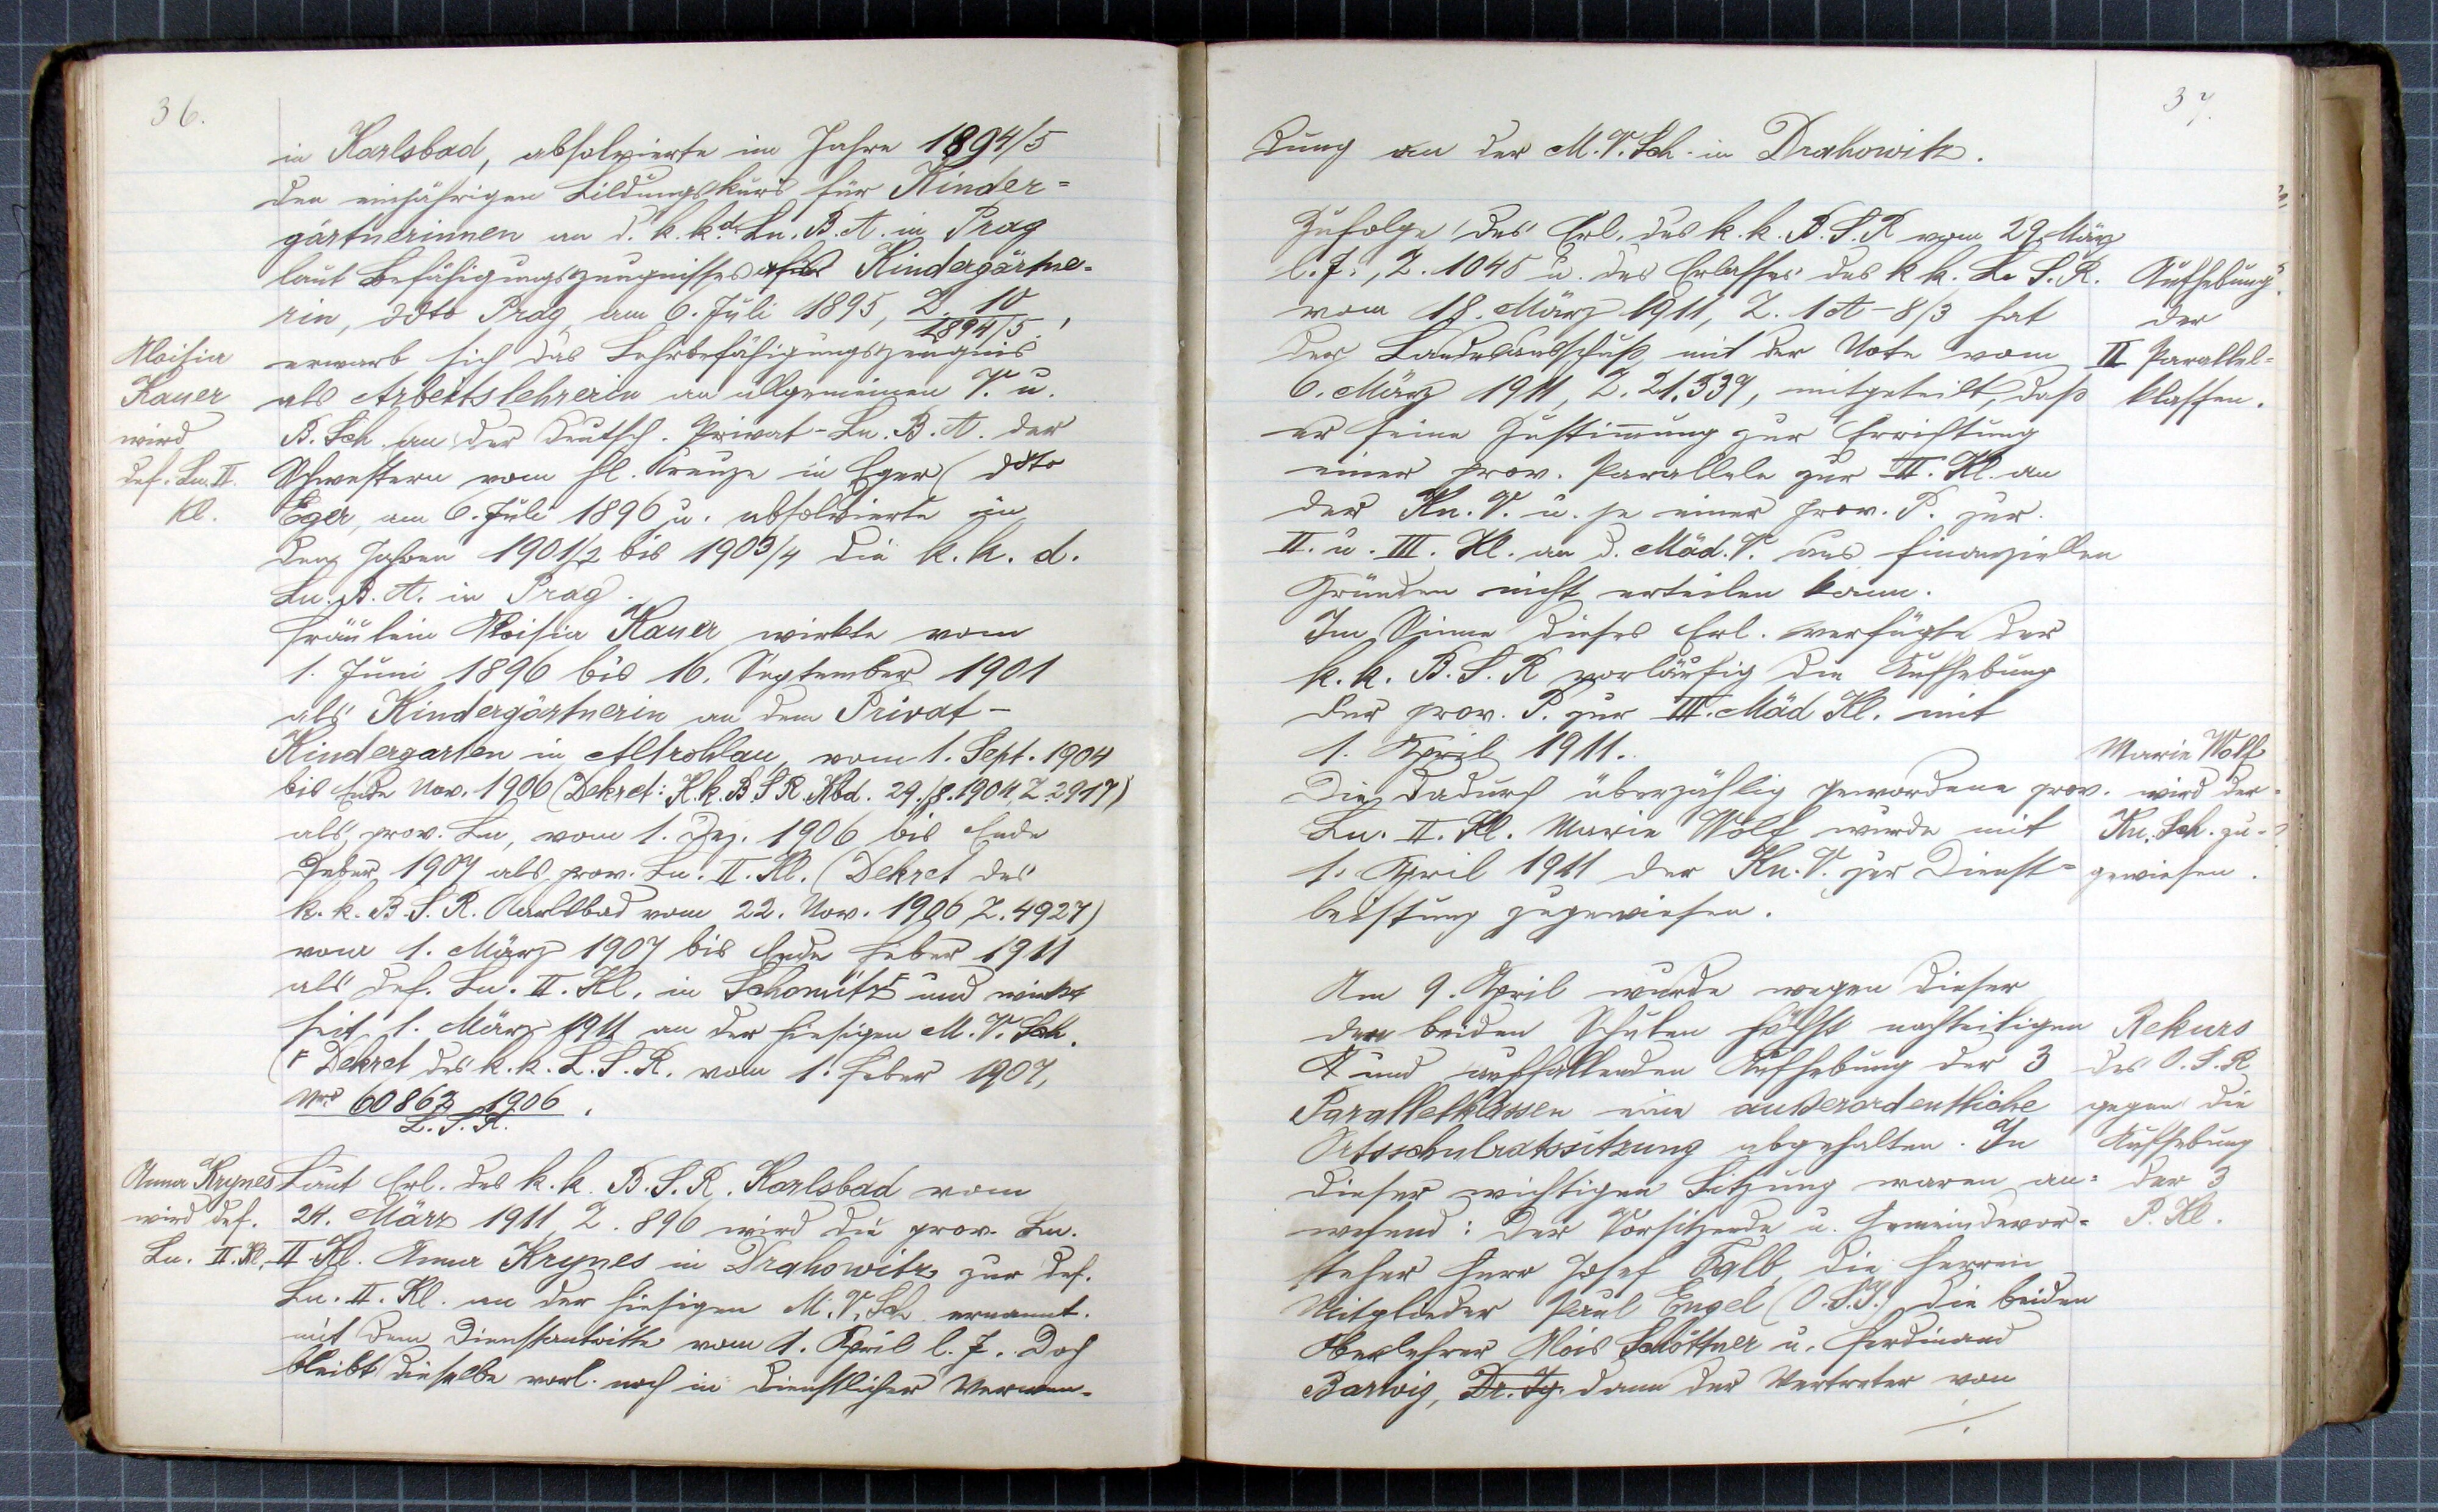 36.
in Karlsbad, absolvierte im Jahre 1894/5
den einjährigen Bildungskurs für Kinder=
gärtnerinnen an d. k.k.d. Ln. B. A. in Prag
laut Befähigungszeugnisses als Kindergärtne-
rin, ddto Prag, am 6. Juli 1895, Z. 10/1894/5,
erwarb sich das Lehrbefähigungszeugnis
als Arbeitslehrerin an allgemeinen V. u.
B. Sch. an der deutsch. Privat-Ln. B. A. der
Schwestern vom hl. Kreuze in Eger (ddto
Eger, am 6. Juli 1896 u. absolvierte in
den Jahren 1901/2 bis 1903/4 die k. k. d.
Ln. B. A. in Prag.
Aloisia
Kauer
wird
def. Ln. II.
Kl.
Fräulein Aloisia Kauer wirkte vom
1. Juni 1896 bis 16. September 1901
als Kindergärtnerin an dem Privat-
Kindergarten in Altrohlau, vom 1. Sept. 1904
bis Ende Nov. 1906 (Dekret: K. k. B S R. Kbd. 29./8. 1904, Z. 2917)
als prov. Ln, vom 1. Dez. 1906 bis Ende
Feber 1907 als prov. Ln. II. Kl. (Dekret des
k. k. B. S. R. Karlsbad vom 22. Nov. 1906, Z. 4927)
vom 1. März 1907 bis Ende Feber 1911
als def. Ln. II. Kl. in Schomitz und wirkt
seit 1. März 1911 an der hiesigen M. V. Sch.
(Dekret des k. k. L. S. R. vom 1. Feber 1907,
No 60863 1906
L. S. R.
Anna Krynes
wird def.
Ln. II. Kl.
Laut Erl. des k. k. B. S. R. Karlsbad vom
24. März 1911, Z. 896 wird die prov. Ln.
II. Kl. Anna Krynes in Drahowitz zur def.
Ln. II. Kl. an der hiesigen M. V. Sch. ernannt.
mit dem Dienstantritte vom 1. April l. J. Doch
bleibt dieselbe vorl. noch in dienstlicher Verwen-
37.
dung an der M. V. Sch. in Drahowitz.
Zufolge des Erl. des k. k. B. S. R vom 29. März
l. J., Z. 1045 u. des Erlasses des k k. L. S. R.
vom 18. März 1911, Z. 1 A-8/3 hat
der Landesausschuß mit der Note vom
6. März 1911, Z. 21.339, mitgeteilt, daß
er seine Zustimmung zur Errichtung
einer prov. Parallele zur II. Kl. an
der Kn. V. u. je einer prov. P. zur
II. u. III. Kl. an d. Mäd. V. aus finanziellen
Gründen nicht erteilen kann.
Aufhebung
der
II Parallel-
klassen.
Im Sinne dieses Erl. verfügte der
k. k. B. S. R vorläufig die Aufhebung
der prov. P. zur III. Mäd Kl. mit
1. April 1911.
Die dadurch überzählig gewordene prov.
Ln. II. Kl. Marie Wolf wurde mit
1. April 1911 der Kn. V. zur Dienst=
leistung zugewiesen.
Marie Wolf
wird der
Kn. Sch. zu-
gewiesen.
Am 9. April wurde wegen dieser
den beiden Schulen höchst nachteiligen
und auffallenden Aufhebung der 3
Parallelklassen eine außerordentliche
Ortsschulratssitzung abgehalten. In
dieser wichtigen Sitzung waren an=
wesend: Der Vorsitzende u. Gemeindevor=
steher Herr Josef Kalb, die Herren
Mitglieder Paul Engel (O. S. I.) die beiden
Oberlehrer Alois Schöttner u. Ferdinand
Barwig, Dr. Ig. dann der Vertreter von
./.
Rekurs
des O. S. R
gegen die
Aufhebung
der 3
P. Kl.